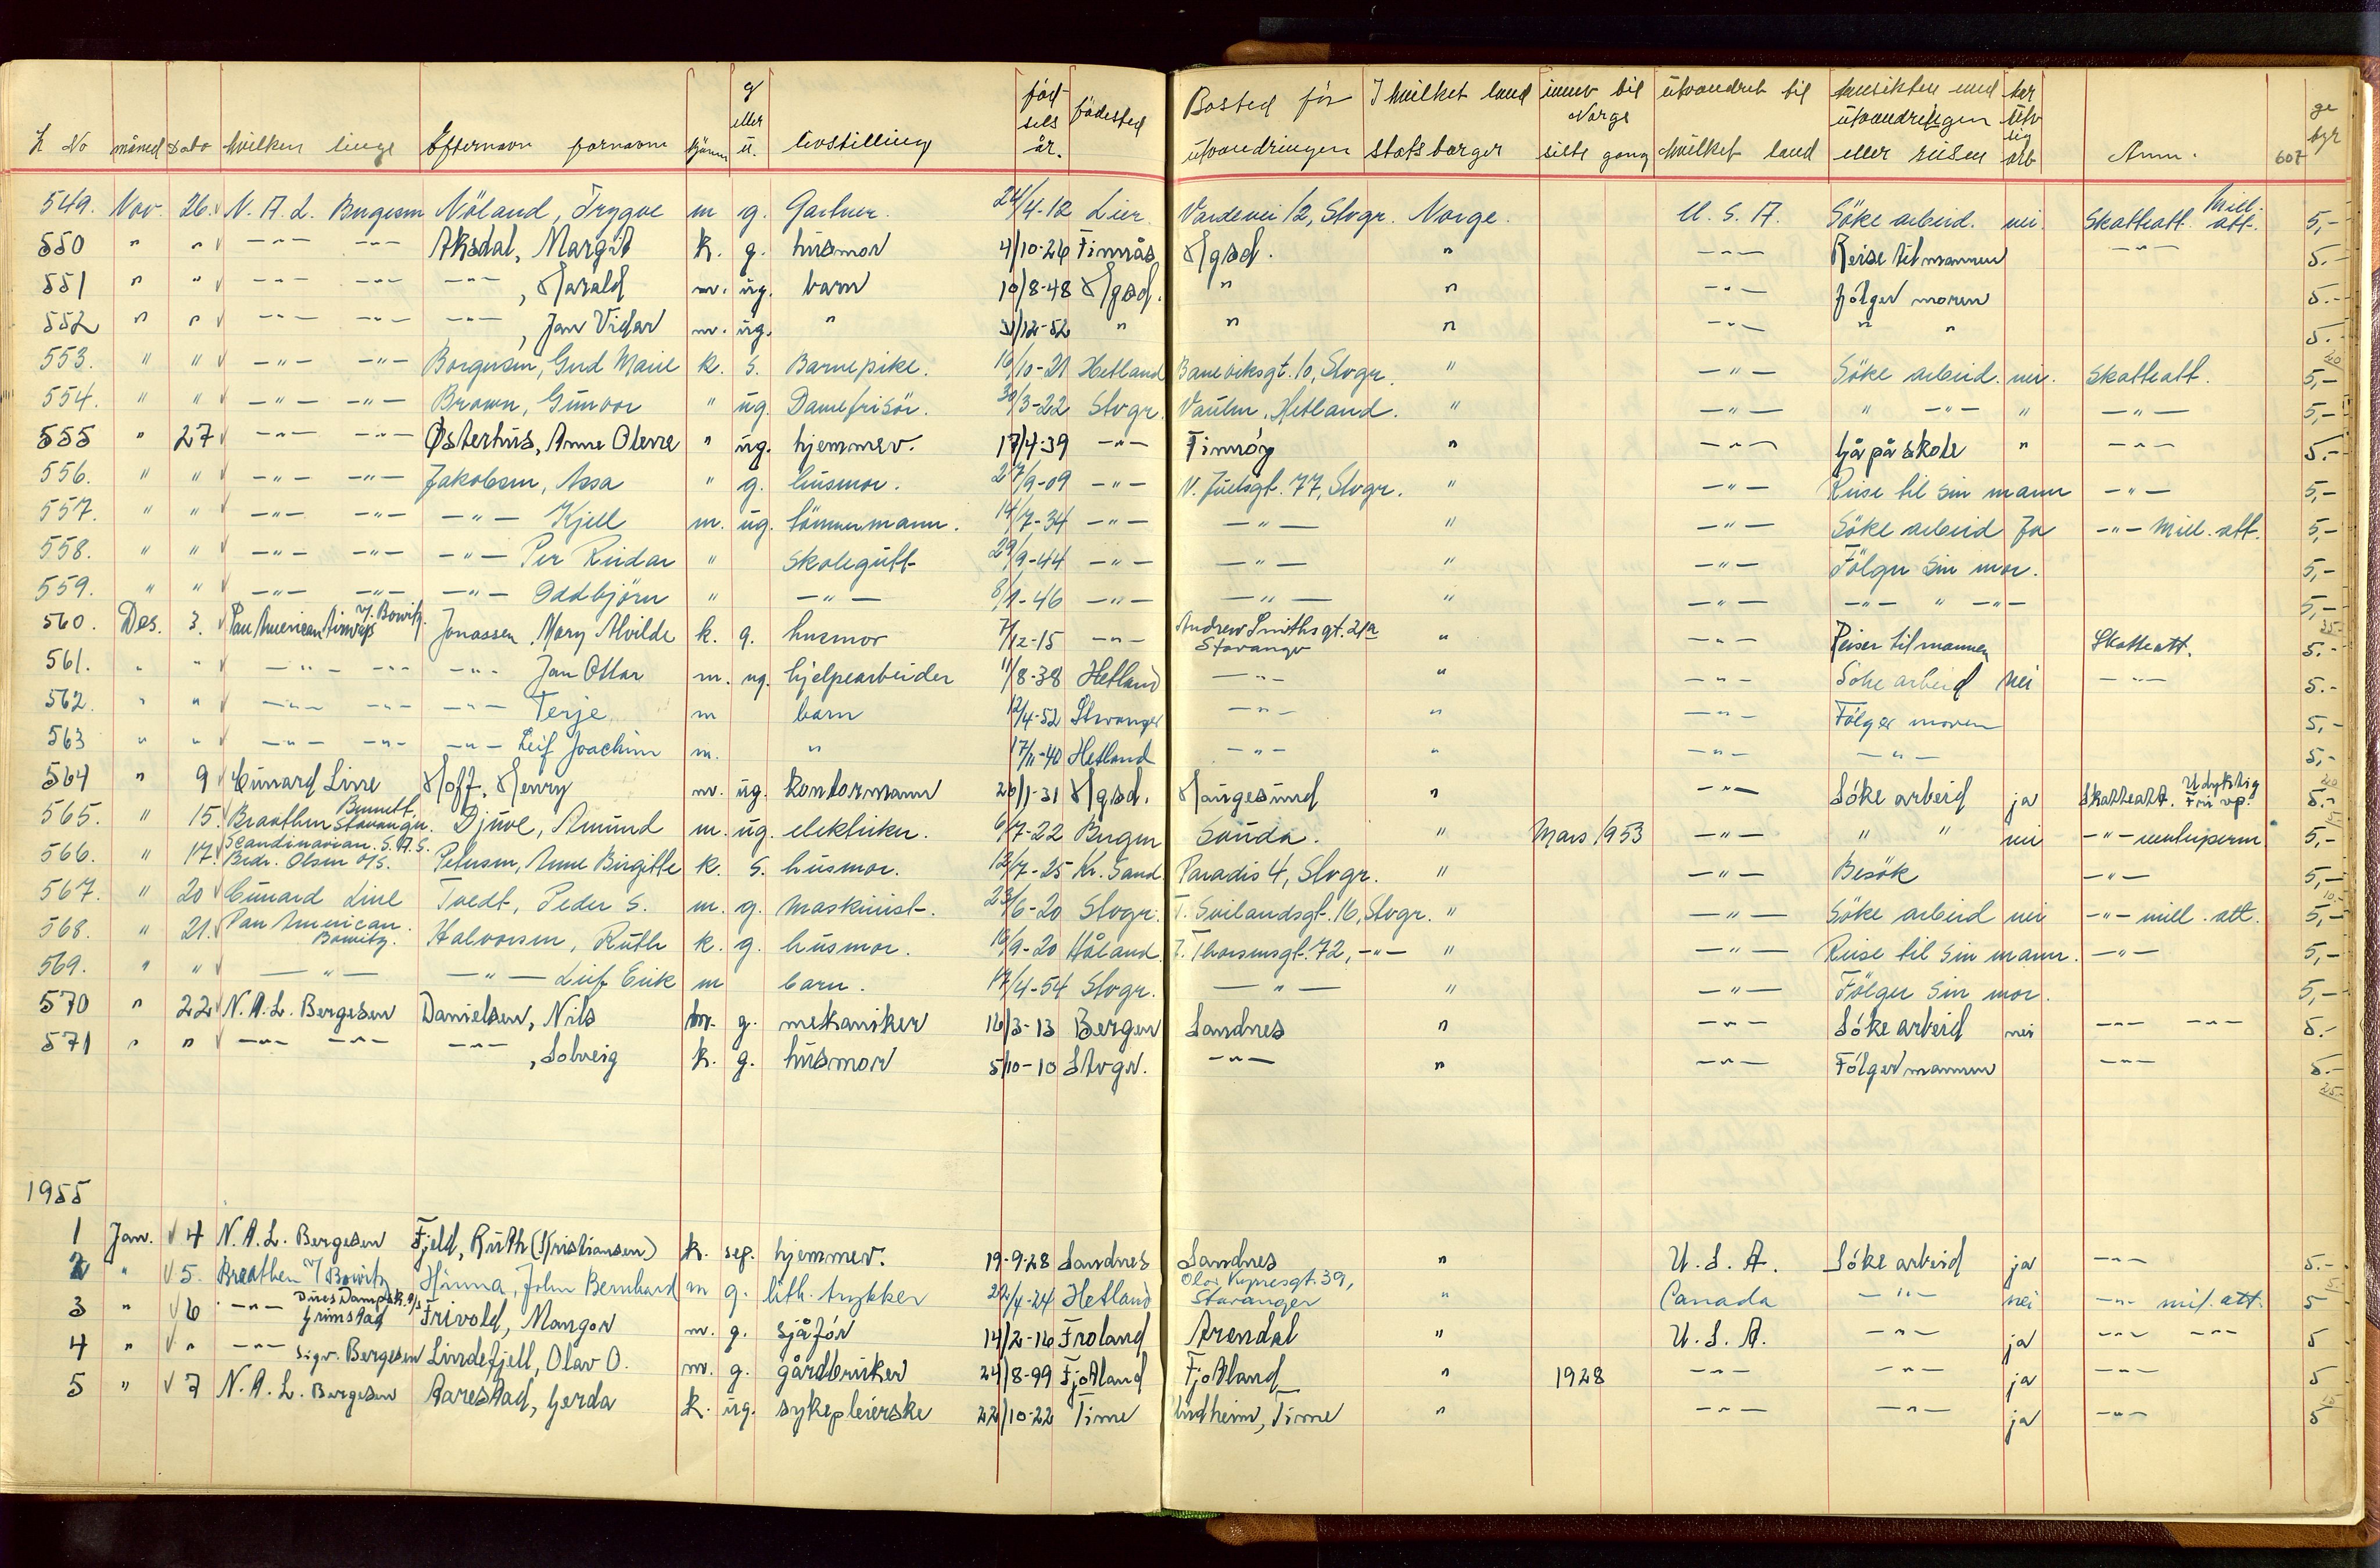 L No måned Dato hvilken linje Efternavn fornavn kjønn g eller u. livsstilling fødsels år. fødested Bosted før utvandringen I hvilket land statsborger innv til Norge siste gang utvandret til hvilket land hensikten med utvandringen eller reisen har utv lig arb Anm. 607 gebyr
549. Nov. 26. N. A. L. Bergesen Nöland, Trygve m g. Gartner. 24/4-12 Lier Vardevei 12, Stvgr. Norge. U. S. A. Söke arbeid. nei. Skatteatt. Mill. att. 5,-
550 " " -"- -"- Aksdal, Margit k. g. husmor 4/10-26 Finnås Hgsd. " -"- Reise til mannen -"- 5.-
551 " " -"- -"- -"-, Harald m. ug. barn 10/8-48 Hgsd. " " -"- følger moren 5.-
552 " " -"- -"- -"-, Jan Vidar m. ug. " 31/12-52 " " " -"- " " 5.-
20
553. " " -"- -"- Borgersen, Gud Marie k. s. Barnepike. 16/10-21 Hetland Baneviksgt. 10, Stvgr. " -"- Söke arbeid. nei. Skatteatt. 5,-
554. " " -"- -"- Brown, Gunvor " ug. Damefrisör. 30/3-22 Stvgr. Vaulen, Hetland. " -"- " -"- " -"- 5,-
555 " 27 -"- -"- Østerhus, Anne Olene " ug. hjemmev. 17/4-39 -"- Finnöy " -"- Gå på skole " -"- 5.-
556. " " -"- -"- Jakobsen, Assa " g. husmor. 27/9-09 -"- N. Juelsgt. 77, Stvgr. " -"- Reise til sin mann -"- 5,-
557. " " -"- -"- -"- Kjell m. ug. tömmermann. 14/7-34 -"- -"- " -"- Söke arbeid Ja -"- Mill. att. 5,-
558. " " -"- -"- -"- Per Reidar " skolegutt 29/9-44 -"- -"- " -"- Fölger sin mor. 5,-
559. " " -"- -"- -"- Oddbjörn " -"- 8/1-46 -"- -"- " -"- -"- " -"- 5,-
35-
560. Des. 3. Pan American Airways v/ Bowitz. Jonassen, Mary Alvilde k. g. husmor 7/12-15 -"- Andrew Smithsgt. 21a Stavanger " -"- Reiser til mannen Skatteatt. 5.-
561. " " -"- -"- -"- Jan Ottar m. ug. hjelpearbeider 11/8-38 Hetland -"- " -"- Söke arbeid nei -"- 5.-
562. " " -"- -"- -"- Terje m barn 12/4-52 Stavanger -"- " -"- Fölger moren 5,-
563 " " -"- -"- -"- Leif Joachim m. " 17/11-40 Hetland -"- " -"- -"- 5,-
20
564 " 9 Cunard Line Hoff, Henry m. ug. kontormann 20/1-31 Hgsd. Haugesund " -"- Söke arbeid ja Skatteatt. Udyktig Fri vp. 5.-
565. " 15. Braathen Bennett. Stavanger. Djuve, Amund m. ug. elektriker. 6/7-22 Bergen Sauda. " Mars 1953 -"- " " nei -"- utreiseperm 5,-
566. " 17. Scandinavian. S. A. S. Brdr. Olsen A/S. Petersen, Anne Birgitte k. s. husmor. 12/7-25 Kr. Sand Paradis 4, Stvgr. " -"- Besök -"- 5,-
10.-
567. " 20 Cunard Line Tvedt, Peder S. m. g. Maskinist. 23/6-20 Stvgr. T. Svilandsgt. 16, Stvgr. " -"- Söke arbeid nei -"- mill. att. 5,-
568. " 21. Pan American. Bowitz. Halvorsen, Ruth k. g. husmor. 16/9-20 Håland. T. Thorsensgt. 72, -"- " -"- Reise til sin mann. -"- 5,-
569. " " -"- -"- Leif Erik m barn. 17/4-54 Stvgr. -"- " -"- Fölger sin mor. 5,-
570 " 22 N. A. L. Bergesen Danielsen, Nils m. g. mekaniker 16/3-13 Bergen Sandnes " -"- Söke arbeid nei -"- -"- 5.-
571 " " -"- -"- -"-, Solveig k. g. husmor 5/10-10 Stvgr. -"- " -"- Følger mannen -"- 5.-
25.-
1955
1 Jan. 4 N. A. L. Bergesen Fjeld, Ruth (Kristiansen) k. sep. hjemmev. 19-9-28 Sandnes Sandnes " U. S. A. Söke arbeid ja -"- 5.-
2 " 5. Braathen v/ Bowitz Hinna, John Bernhard m g. lith. trykker 22/4-24 Hetland Olav Kyrresgt. 39, Stavanger " Canada -"- nei -"- mil. att. 5
3 " 6 -"- Dues Dampsk. A/S Grimstad Frivold, Mangor m. g. sjåför 14/2-16 Froland Arendal " U. S. A. -"- ja -"- -"- 5
4 " " -"- Sigv. Bergesen Lindefjell, Olav O. m. g. gårdbruker 24/8-99 Fjotland Fjotland " 1928 -"- -"- ja -"- 5
5 " 7 N. A. L. Bergesen Aarestad, Gerda k. ug. sykepleierske 22/10-22 Time Undheim, Time " -"- -"- ja -"- 5